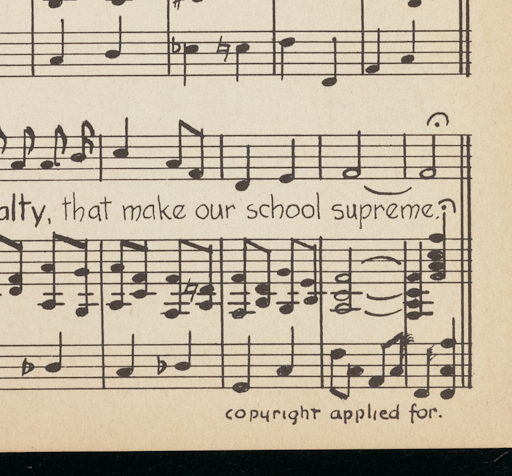 alty, that make our school supreme.
copyright applied for.